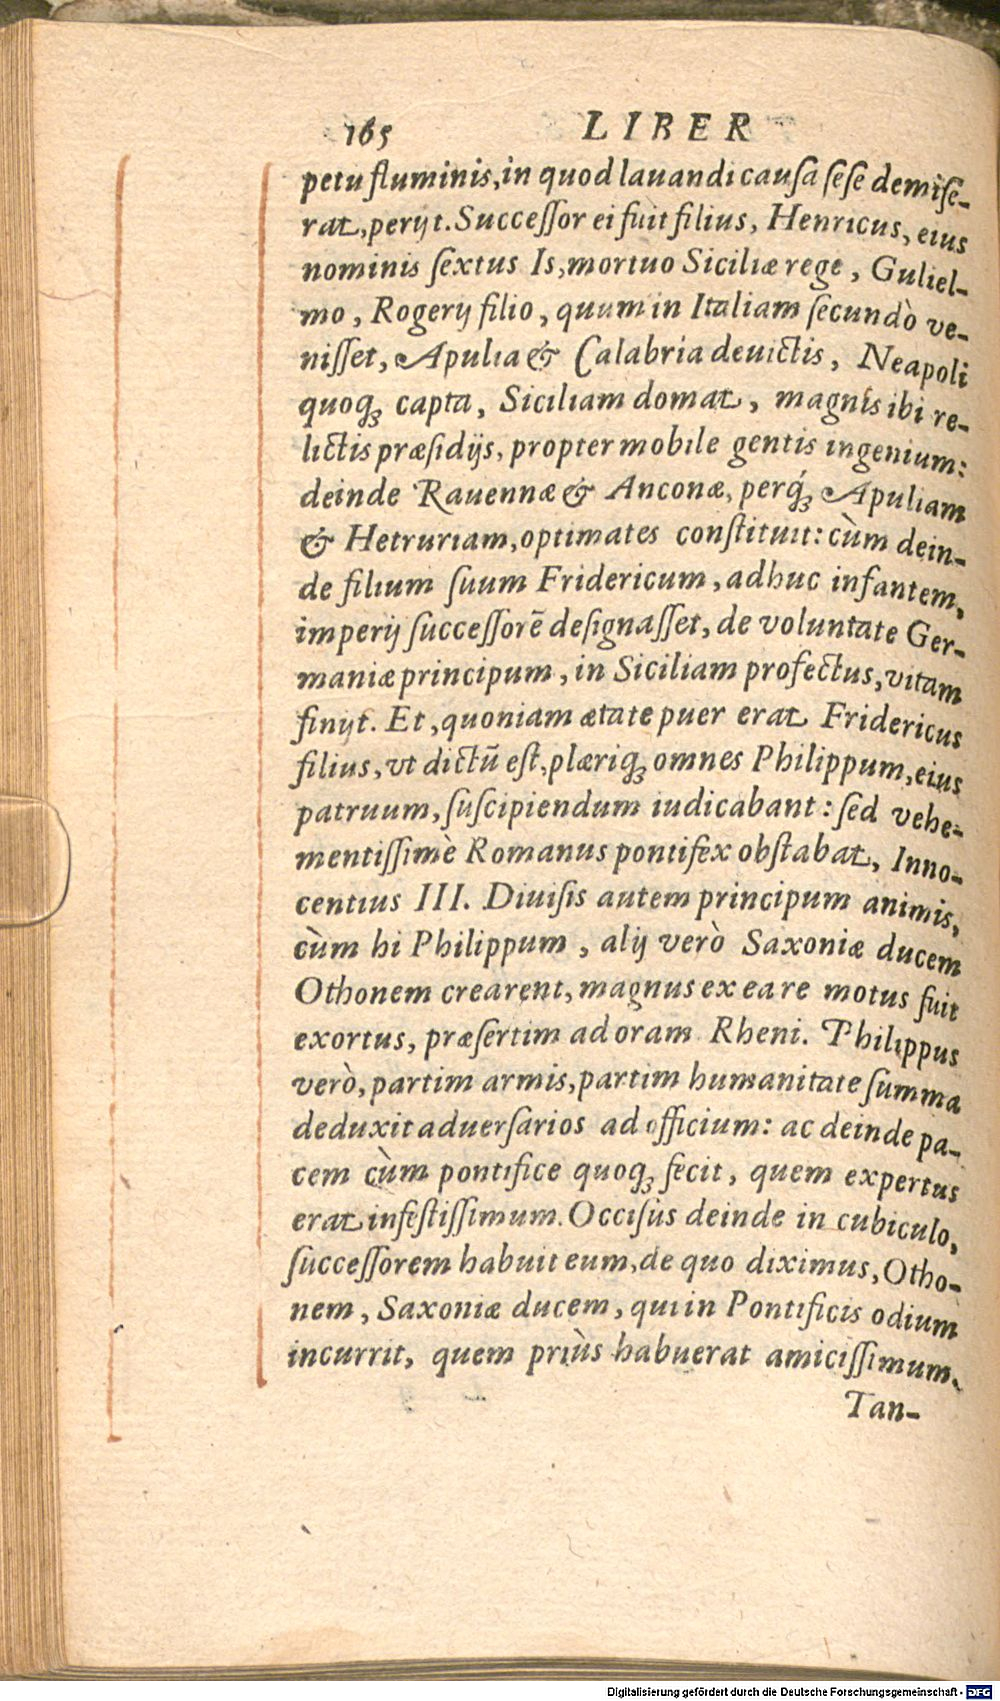 165 LIBER
petu fluminis, in quod lauandi causa ſeſe demiſe-
rat, perijt. Succeſſor ei fuit filius, Henricus, eius
nominis ſextus Is, mortuo Siciliæ rege, Guliel-
mo, Rogerij filio, quum in Italiam ſecundò ve-
niſſet, Apulia & Calabria deuictis, Neapoli
quoq; capta, Siciliam domat, magnis ibi re-
lictis præſidijs, propter mobile gentis ingenium:
deinde Rauennæ & Anconæ, perq́; Apuliam
& Hetruriam, optimates conſtituit: cùm dein-
de filium ſuum Fridericum, adhuc infantem,
imperij ſucceſſorē deſignaſſet, de voluntate Ger-
maniæ principum, in Siciliam profectus, vitam
finijt. Et, quoniam ætate puer erat Fridericus
filius, vt dictū eſt, plæriq; omnes Philippum, eius
patruum, ſuſcipiendum iudicabant: ſed vehe-
mentiſſimè Romanus pontifex obſtabat, Inno-
centius III. Diuiſis autem principum animis,
cùm hi Philippum, alij verò Saxoniæ ducem
Othonem crearent, magnus ex ea re motus fuit
exortus, præſertim ad oram Rheni. Philippus
verò, partim armis, partim humanitate ſumma
deduxit aduerſarios ad officium: ac deinde pa-
cem cùm pontifice quoq; fecit, quem expertus
erat infeſtiſſimum. Occiſus deinde in cubiculo,
ſucceſſorem habuit eum, de quo diximus, Otho-
nem, Saxoniæ ducem, qui in Pontificis odium
incurrit, quem priùs habuerat amiciſſimum.
Tan-
Digitalisierung gefördert durch die Deutsche Forschungsgemeinschaft - DFG